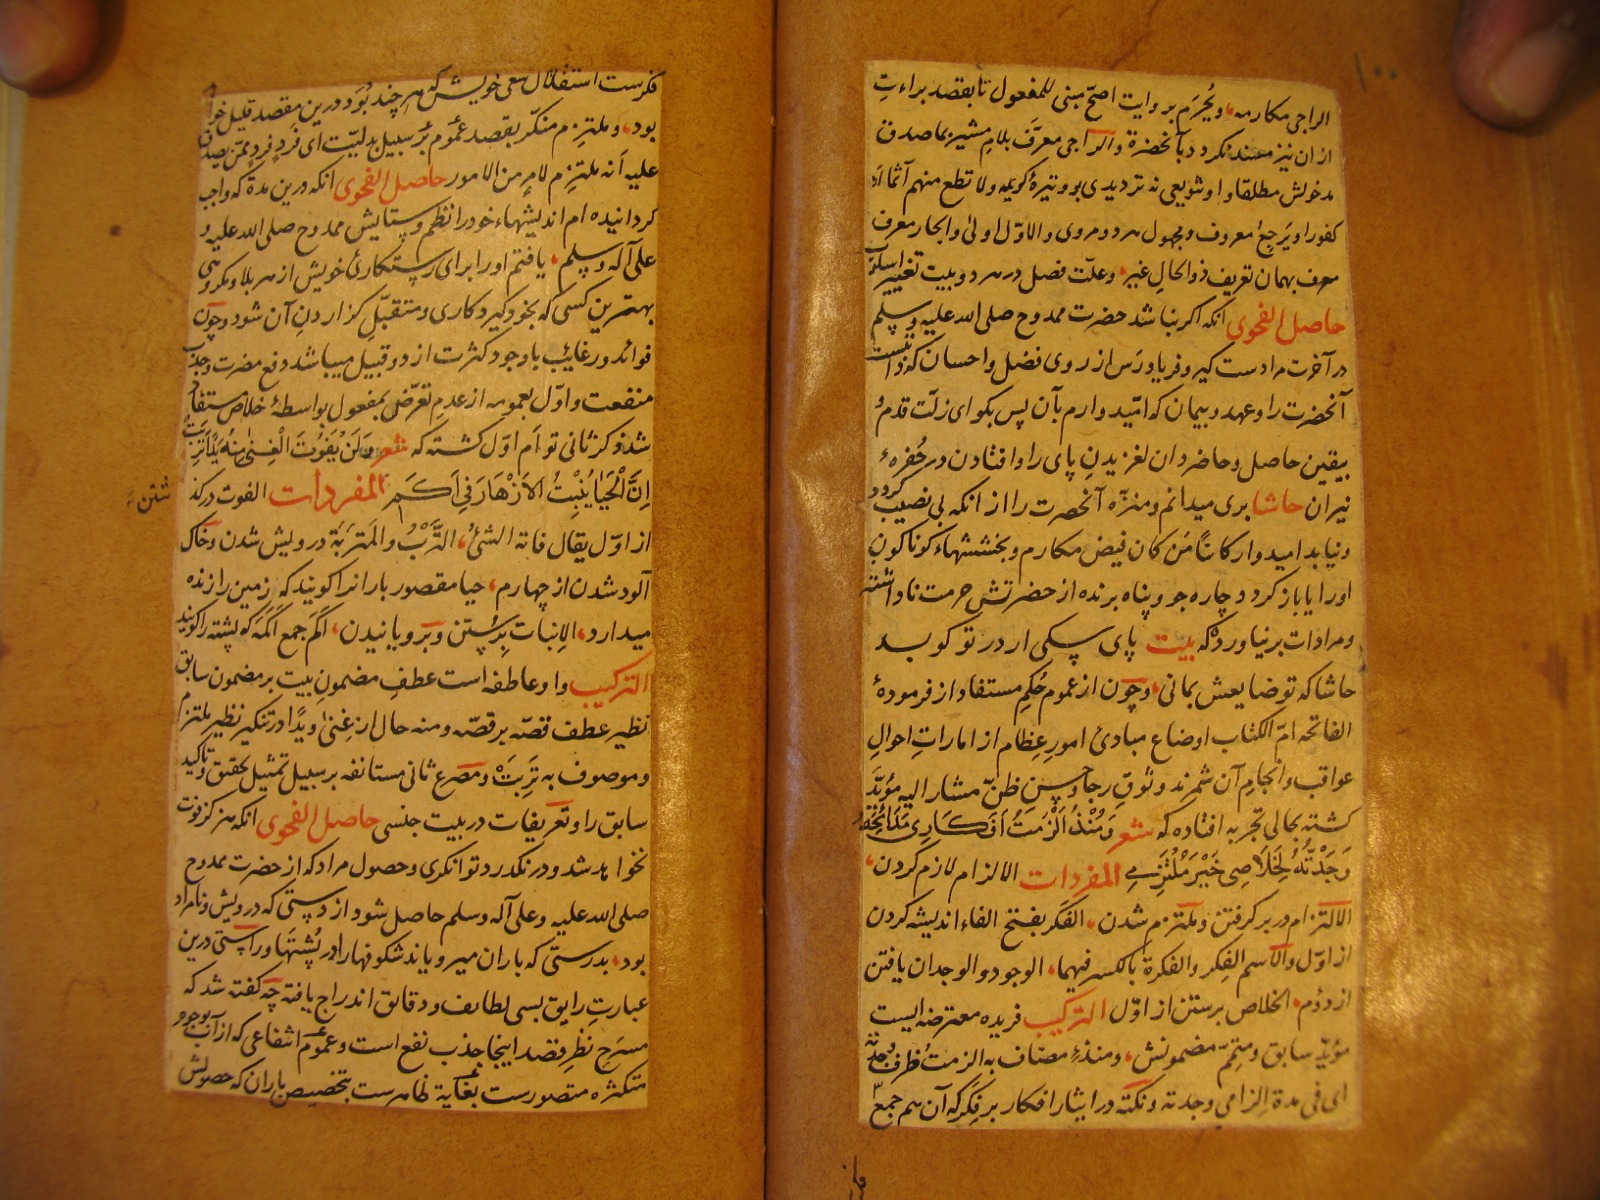 ۱۰۰
الراجی مکارمه، ویُحرَم بر وایت اصحّ مبنی للمفعول تا بقصد براءتِ
از ان نیز مسند نکردد بآنحضرة والراجی معرَّف بلامِ مشیر بما صدق
مدخولش مطلقا و او تنویعی نه تردیدی بر وتیرهٔ کریمه ولا تطع منهم آثما او
کفورا و یَرجِعُ معروف و مجهول هر دو مروی والاوّل اولیٰ والجار معرف
معرف بهمان تعریف ذوالحالِ غیر، وعلّت فصل در هر دو بیت تغییر اسلوب
حاصل الفحوی انکه اکر نباشد حضرت ممدوح صلی الله علیه وسلم
در آخرت مرا دست کیر و فریاد رَس از روی فضل و احسان که ذات
آنحضرت را و عهد و پیمان که امّیدوارم بآن پس بکو ای زلّت قدم و
بیقین حاصل و حاضر دان لغزیدنِ پای را و افتادن در حُفرهء
نیران حاشا بری میدانم و منزّه آنحصرت را از انکه بی نصیب کردد
دنیابد امیدوار کائنًا مَن کان فیض مکارم و بخششهاء کوناکونِ
اورا یا باز کردد چاره جو و پناه برنده از حضرتش حرمت ناداشته
و مرادات بر نیاورده که بیت پای سکی ار در تو کوبد
حاشا که تو ضایعش بمانی، وچون از عموم حُکمِ مستفاد از فرمودهٔ
الفاتحه امّ الکتاب اوضاع مبادیٔ امورِ عِظام از اماراتِ احوالِ
عواقب و انجامِ آن شمرند وثوقِ رجا و حسنِ ظنّ مشار الیه مؤیّد
کشته بحالی تجربه افتاده که شعر وَمُنْذُ اَلْزَمْتُ اَفْکَارِی مَدَائِحَهُ
وَجَدْتُّهُ لِخَلَاصِی خَیْرَ مُلْتَزِمِ المفردات الالزام لازم کردن،
الالتزام در بر کرفتن و ملتزم شدن، الفَکر بفتح الفاء اندیشه کردن
از اوّل والاسم الفِکر والفکرة بالکسر فیهما، الوجود والوجدان یافتن
از دوُم، الخلاص برستن از اوّل الترکیب فریده معترضه ایست
مؤیّدِ سابق و متمّم مضمونش، و منذُ مضاف به الزمتُ ظرف وجدته
ای فی مدة اِلزامی وجدته و نکته در ایثار افکار بر فِکَر که آن هم جمع
فکرست استقلال سعی خویش که هر چند بُوَد درین مقصد قلیل خوا
بود، و ملتزم منکّر بقصد عموم بَر سبیلِ بدلیّت ای فَردٍ فَردٍ ممّن یصدق
علیه اَنه ملتزم لامرٍ من الامور حاصل الفحوی انکه درین مدة که واجب
کردانیده ام اندیشهاء خود را نظم و ستایش ممدوح صلی الله علیه و
علی آله وسلم، یافتم اورا برای رستکاریٔ خویش از هر بلا و مکروهی
بهترین کسی که بخود کیرد کاری و متقبّلِ کزاردنِ آن شود وچون
فوائد و رغائب باوجود کثرت از دو قبیل میباشد دفع مضرت وجذب
منفعت و اوّل بعمومه از عدمِ تعرّضِ بمفعول بواسطهٔ خلاص مستفاد
شد ذکر ثانی توأم اوّل کشته که شعر وَلَنْ یَفُوْتَ الْغِنٰی مِنْهُ یَدًا تَرِبَتْ
اِنَّ الْحَیَا یُنْبِتُ الاَزْهَارَ فِی اَکَمِ المفردات الفوت درکذ
شتن
از اوّل یقال فاته الشئُ، التَّرْبُ والمَتربَة درویش شدن وخاک
آلود شدن از چهارم، حیا مقصور بارانرا کویند که زمین را زنده
میدارد، الاِنبات برُستن و بَر ویانیدن، اکَم جمع اَکَمَه که پشته را کویند
الترکیب واو عاطفه است عطفِ مضمونِ بیت بر مضمون سابق
نظیر عطف قصّه بر قصّه و منه حال از غِنیٰ و یدًا در تنکیر نظیر ملتزم
و موصوف به تَرِبَتْ و مصرعِ ثانی مستانفه بر سبیل تمثیل تحقیق وتاکید
سابق را و تعریفات در بیت جنسی حاصل الفحوی انکه هرکز فوت
نخواهد شد و در نکذرد توانکری و حصول مراد که از حضرت ممدوح
صلی الله علیه وعلی آله وسلم حاصل شود از دستی که درویش و نامراد
بود، بدرستی که باران میرویاند شکوفهارا در پُشتها و راستی درین
عبارتِ رایق بسی لطایف و دقایق اندراج یافته چه کفته شد که
مسرَحِ نظرِ قصد اینجا جذب نفع است و عموم انتفاعی که از آب بوجوه
متکثره متصورست بغایة ظاهرست بتخصیص باران که حصولش